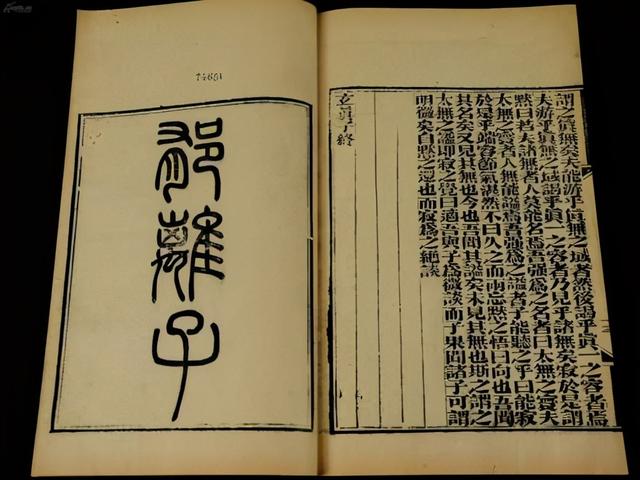 謂之眞無矣夫能游乎眞無之域者然後謁乎眞一之容者焉
夫游乎眞無之域謁乎眞一之容者乃見乎諸無矣寂於是謂
默曰者夫諸無者人莫能名焉吾強爲之名者曰太無之夫
太無之者人無能謚焉吾強爲之謚者子能聽之乎曰能寂
於是乎端容節氣湛然不曰久之而兩忘默之悟曰向也吾聞
其名矣又見其無也今也吾聞其謚矣未見其無也斯之謂之
太無之謚卽寂之覺曰適吾與子爲微談而子果聞諸子可謂
明微矣自默之還也而寂爲之絶談
玄眞子終
郁離子